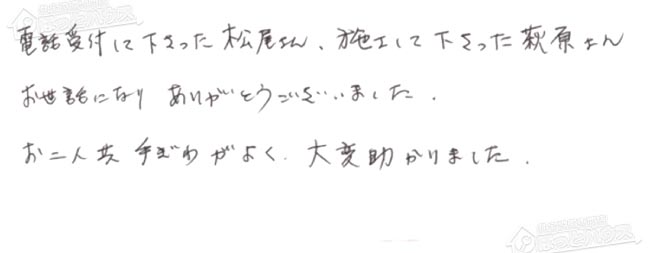 電話受付して下さった松尾さん、施工して下さった萩原さん
お世話になり ありがとうございいました.
お二人共 手ぎわがよく、大変助かりました.